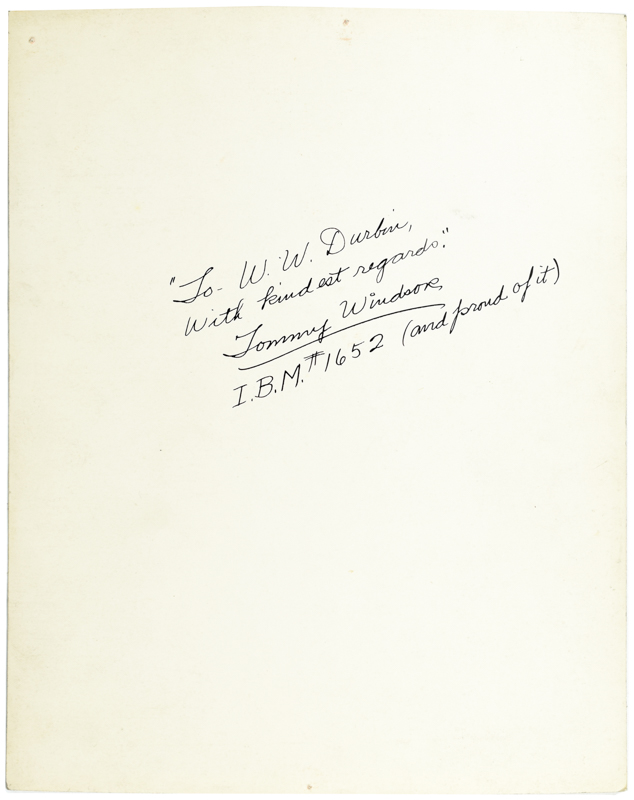 "To - W. W. Durbin,
With kindest regards."
Tommy Windsor
I.B.M. #1652 (and proud of it)